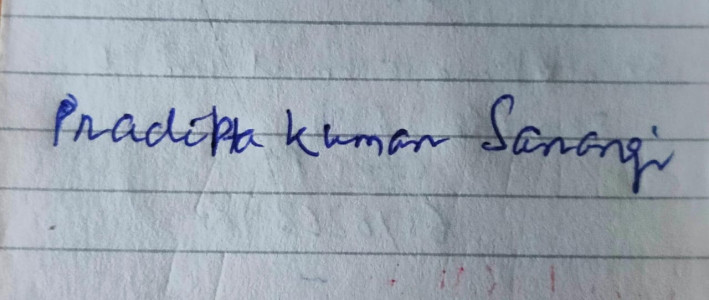 Pradipta Kumar Sarangi